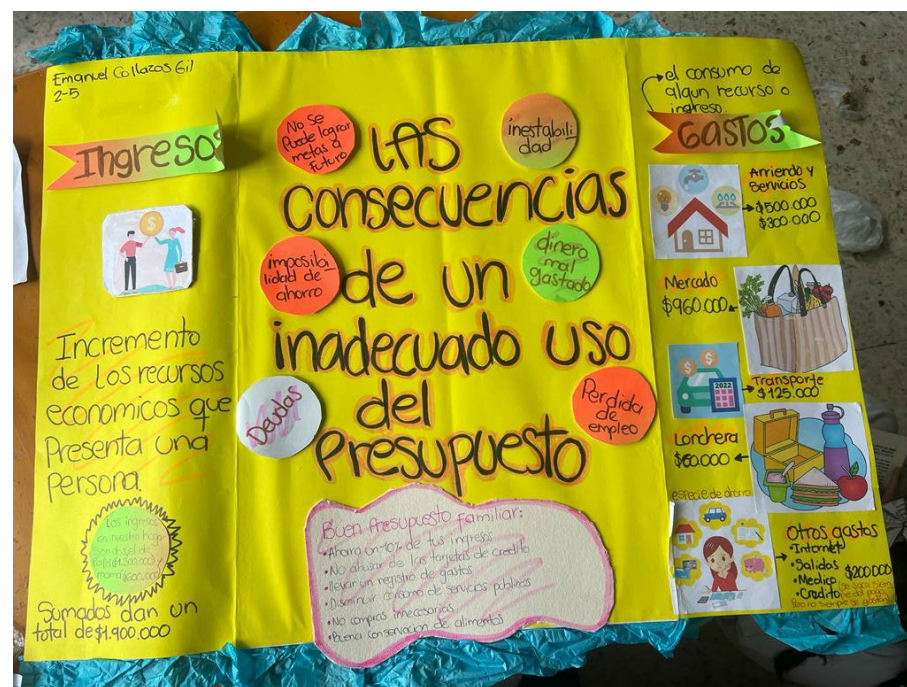 Emanuel Collazos Gil
2-5
Ingresos
Incremento
de los recursos
economicos que
Presenta una
Persona.
Los ingresos
en nuestro hogar
son dos, el de
papá($1.300.000) y
mamá($600.000)
Sumados dan un
total de $1.900.000
No se
Puede lograr
metas a
futuro
inestabili-
dad
LAS
Consecuencias
imposibi-
lidad de
ahorro
dinero
mal
gastado
de un
inadecuado uso
Deudas
del
Perdida
de
empleo
Presupuesto
Buen Presupuesto familiar:
•Ahorra un 10% de tus ingresos
•No abusar de las tarjetas de credito
•llevar un registro de gastos
•Disminuir consumo de servicios publicos
•No compras innecesarias
•Buena conservacion de alimentos
el consumo de
algun recurso o
ingreso
Gastos
Arriendo y
Servicios
$500.000
$300.000
Mercado
$960.000
2022
Transporte
$125.000
Lonchera
$60.000
especie de ahorro
Otros gastos
•Internet
•Salidas
•Medico
$200.000
•Credito